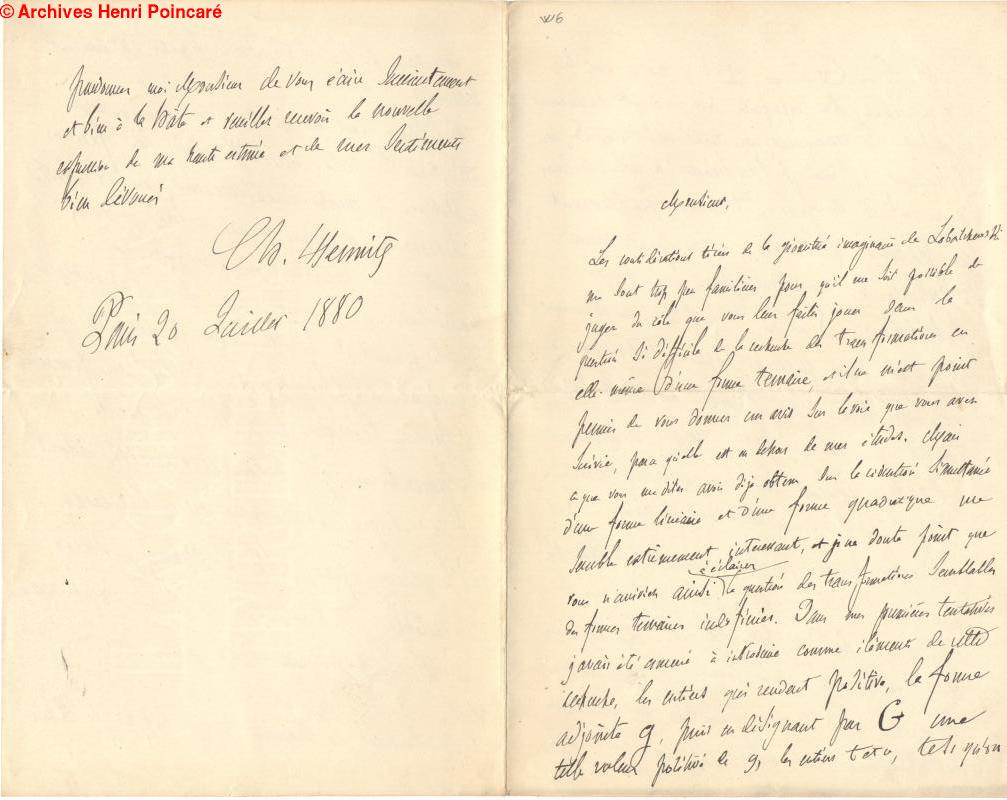 © Archives Henri Poincaré
W6
pardonnez moi Monsieur de vous écrire succinctement
et bien à la hâte et veuillez recevoir la nouvelle
expression de ma haute estime et de mes sentiments
bien dévoués
Ch. Hermite
Paris 20 Juillet 1880
Monsieur,
Les considérations tirées de la géométrie imaginaire de Lobatchewski
me sont trop peu familières pour qu'il me soit possible de
juger du rôle que vous leur faites jouer dans la
question si difficile de la recherche des transformations en
elle-même d'une forme ternaire, et il ne m'est point
permis de vous donner un avis sur la voie que vous avez
suivie, parce qu'elle est en dehors de mes études. Mais
ce que vous me dites avoir déjà obtenu sur la réduction simultanée
d'une forme linéaire et d'une forme quadratique me
semble extrêmement intéressant, et je ne doute point que
vous n'arriviez ainsi à éclairer la question des transformations semblables
des formes ternaires indéfinies. Dans mes premières tentatives
j'avais été amené à introduire comme éléments de cette
recherche, les entiers qui rendent positive, la forme
adjointe g, puis en désignant par G une
telle valeur positive de g, les entiers t et u, tels qu'on